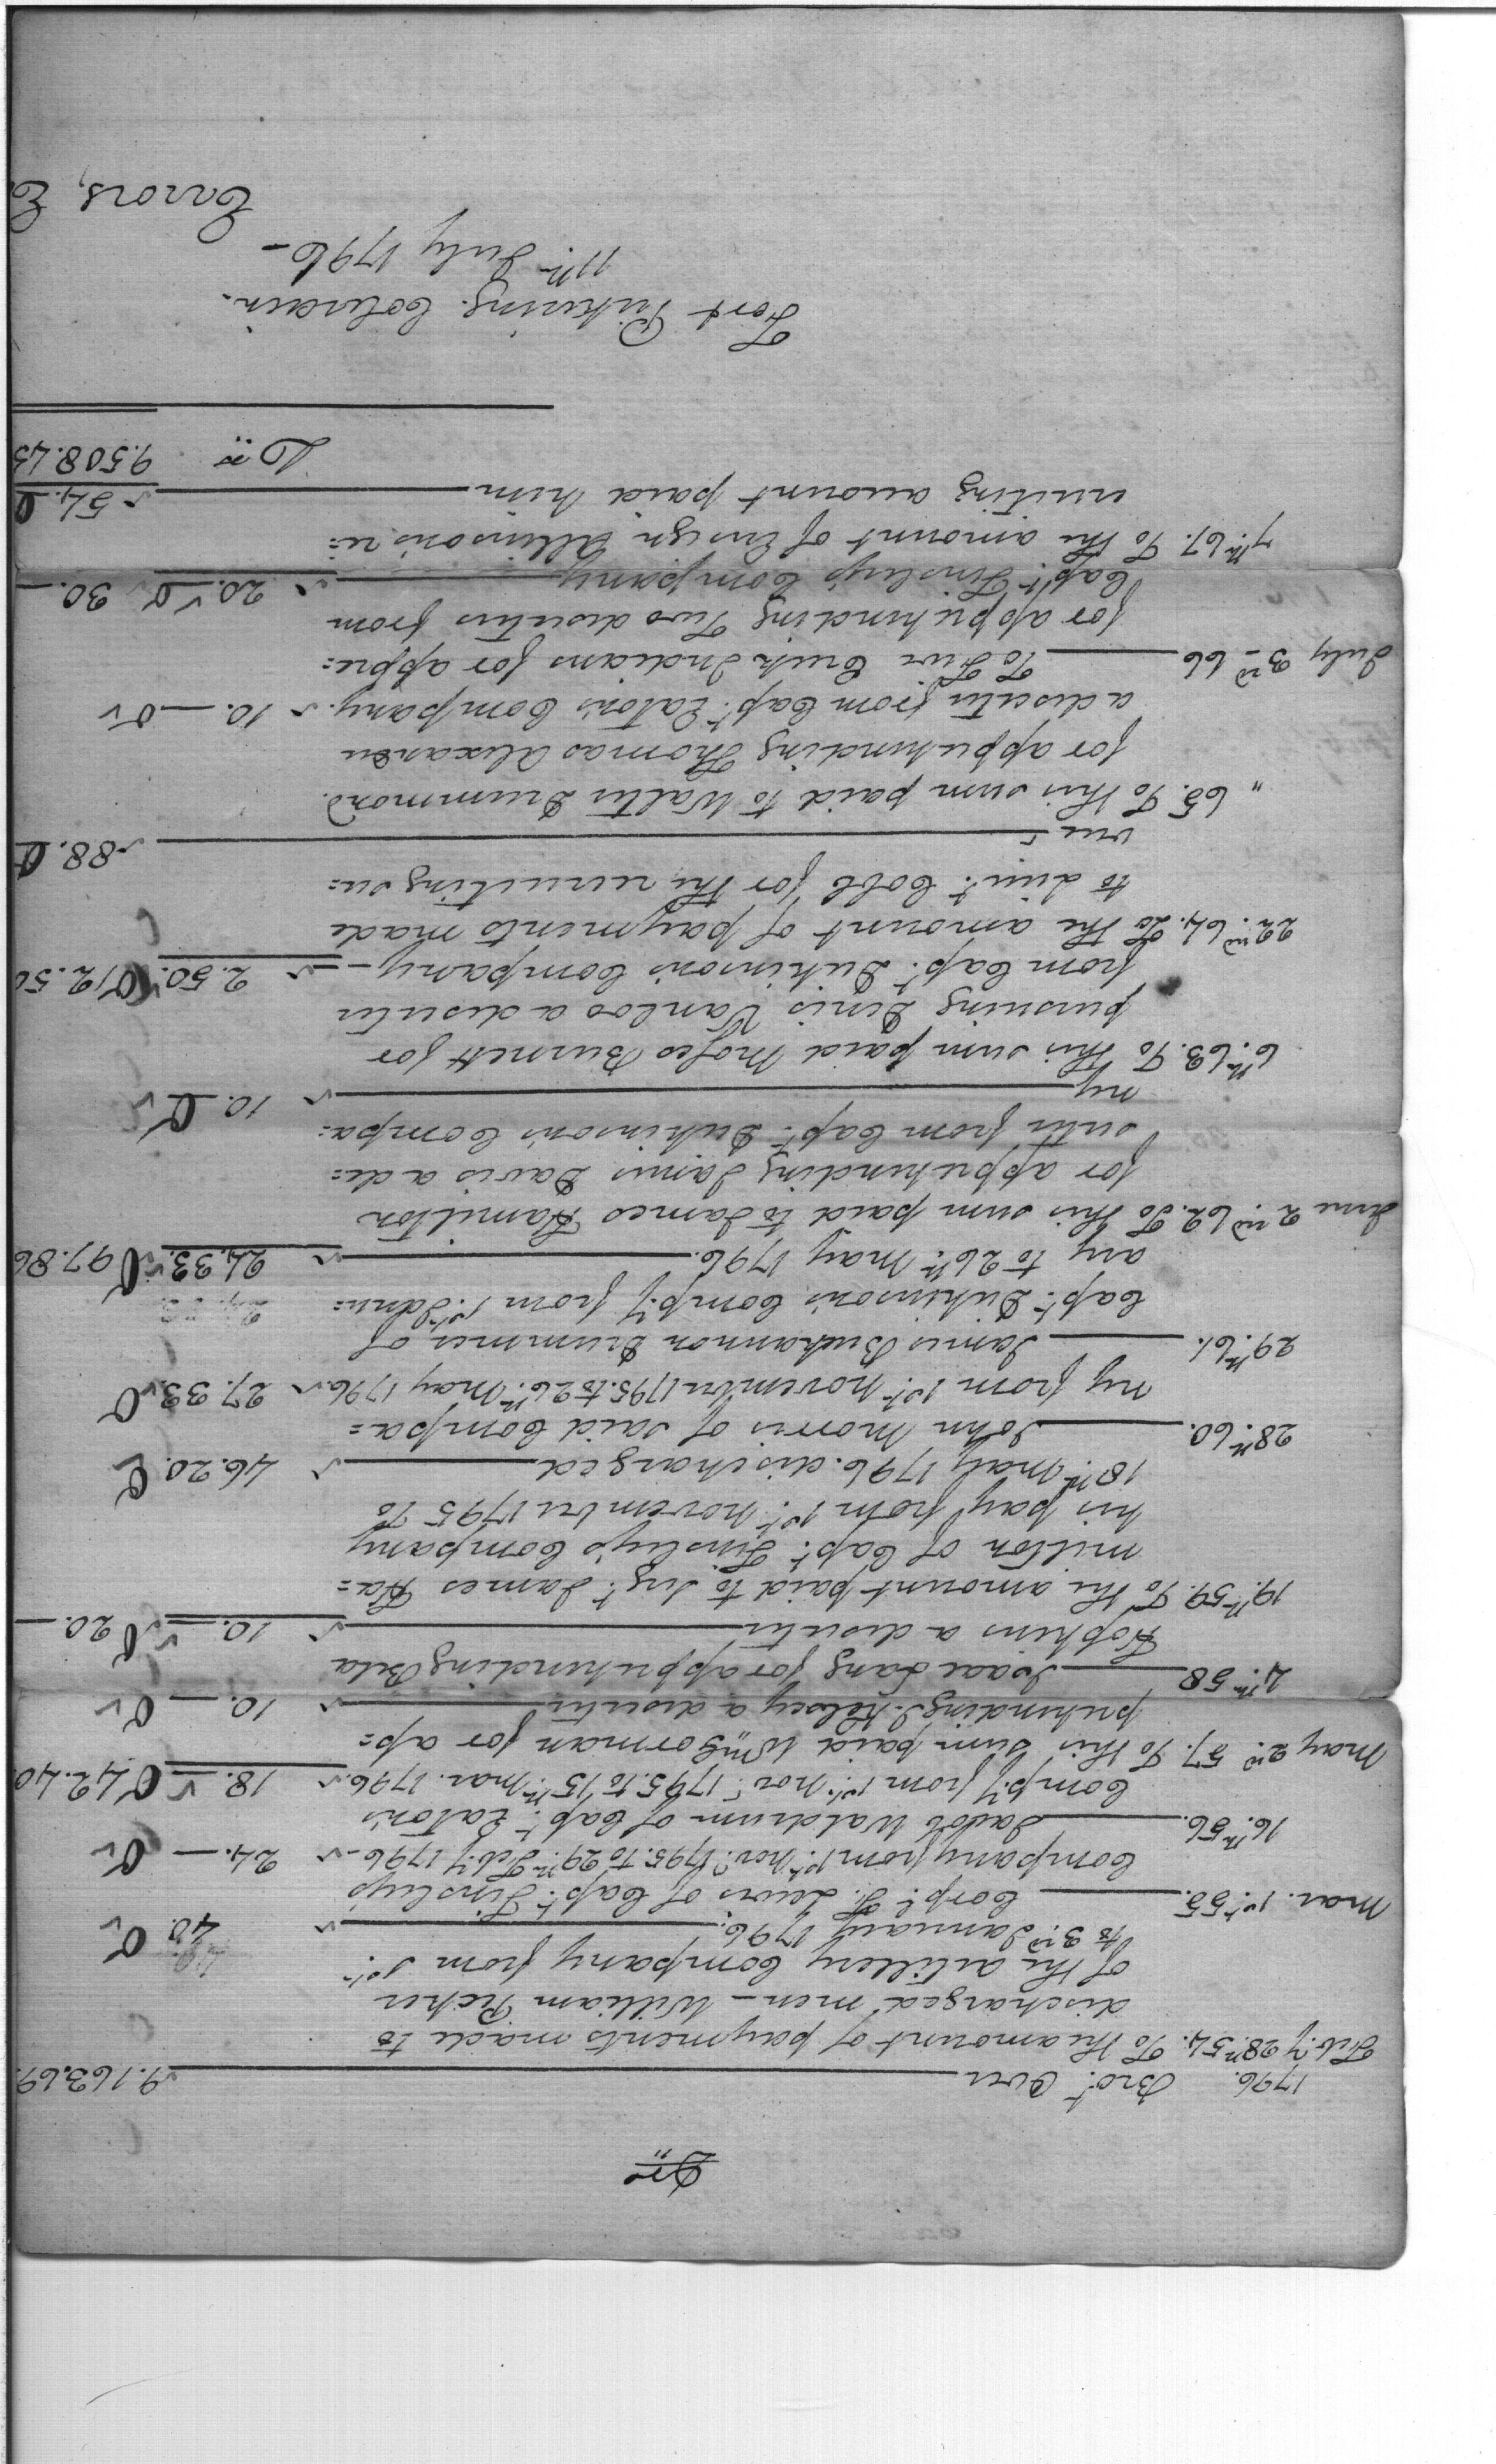 Dr.
1796. Bro.t Over 9.163.69
Feb.y 28th 54. To the amount of payments made to
discharged men – William
of the artillery Company from 1st
to 3d January 1796. 40.
Mar. 1st 55. Corp.l J. Lewis of Cap.t Tinsley's
Company from 1st Nov.r 1795. to 29th Feb.y 1796 24.—
16.th 56. Jacob Waldrum of Cap.t Eaton's
Comp.y from 1st Nov.r 1795. to 15th Mar. 1796. 18. 42.40
May 2.d 57. To this sum paid Wm Gorman for ap=
prehending J. Kelsey a deserter 10.—
4.th 58 Isaac Lang for apprehending Bela
Hopkins a deserter 10.— 20.—
19.th 59. To the amount paid to Serj.t James Ha=
milton of Cap.t Tinsley's Company
his pay from 1st November 1795 to
18th May 1796. discharged 46.20.
28th 60. John Morris of said Compa=
ny from 1st November 1795. to 26th May 1796. 27.33.
29th 61. James Buchannon Drummer of
Cap.t Dickinson's Comp.y from 1st Janu=
ary to 26th May 1796. 24.33. 97.86
June 2.d 62. To this sum paid to James Hamilton
for apprehending James Davis a de=
serter from Cap.t Dickinson's Compa=
ny 10.
6.th 63. To this sum paid Moses Burnett for
pursuing Denis Vanloo a deserter
from Cap.t Dickinson's Company 2.50. 12.50
22.d 64. To the amount of payments made
to Lieu.t Cobb for the recruiting ser=
vice 88.
" 65. To this sum paid to Walter Drummond.
for apprehending Thomas Alexander
a deserter from Cap.t Eaton's Company. 10.—
July 3.d 66 To Five Creek Indians for appre=
for apprehending Two deserters from
Cap.t Tinsley's Company 20.— 30.—
7.th 67. To the amount of Ensign Allinson's re=
cruiting account paid him 54.
Do.rs 9.508.45
Fort Pickering. Colerain.
11th July 1796–
Errors, E